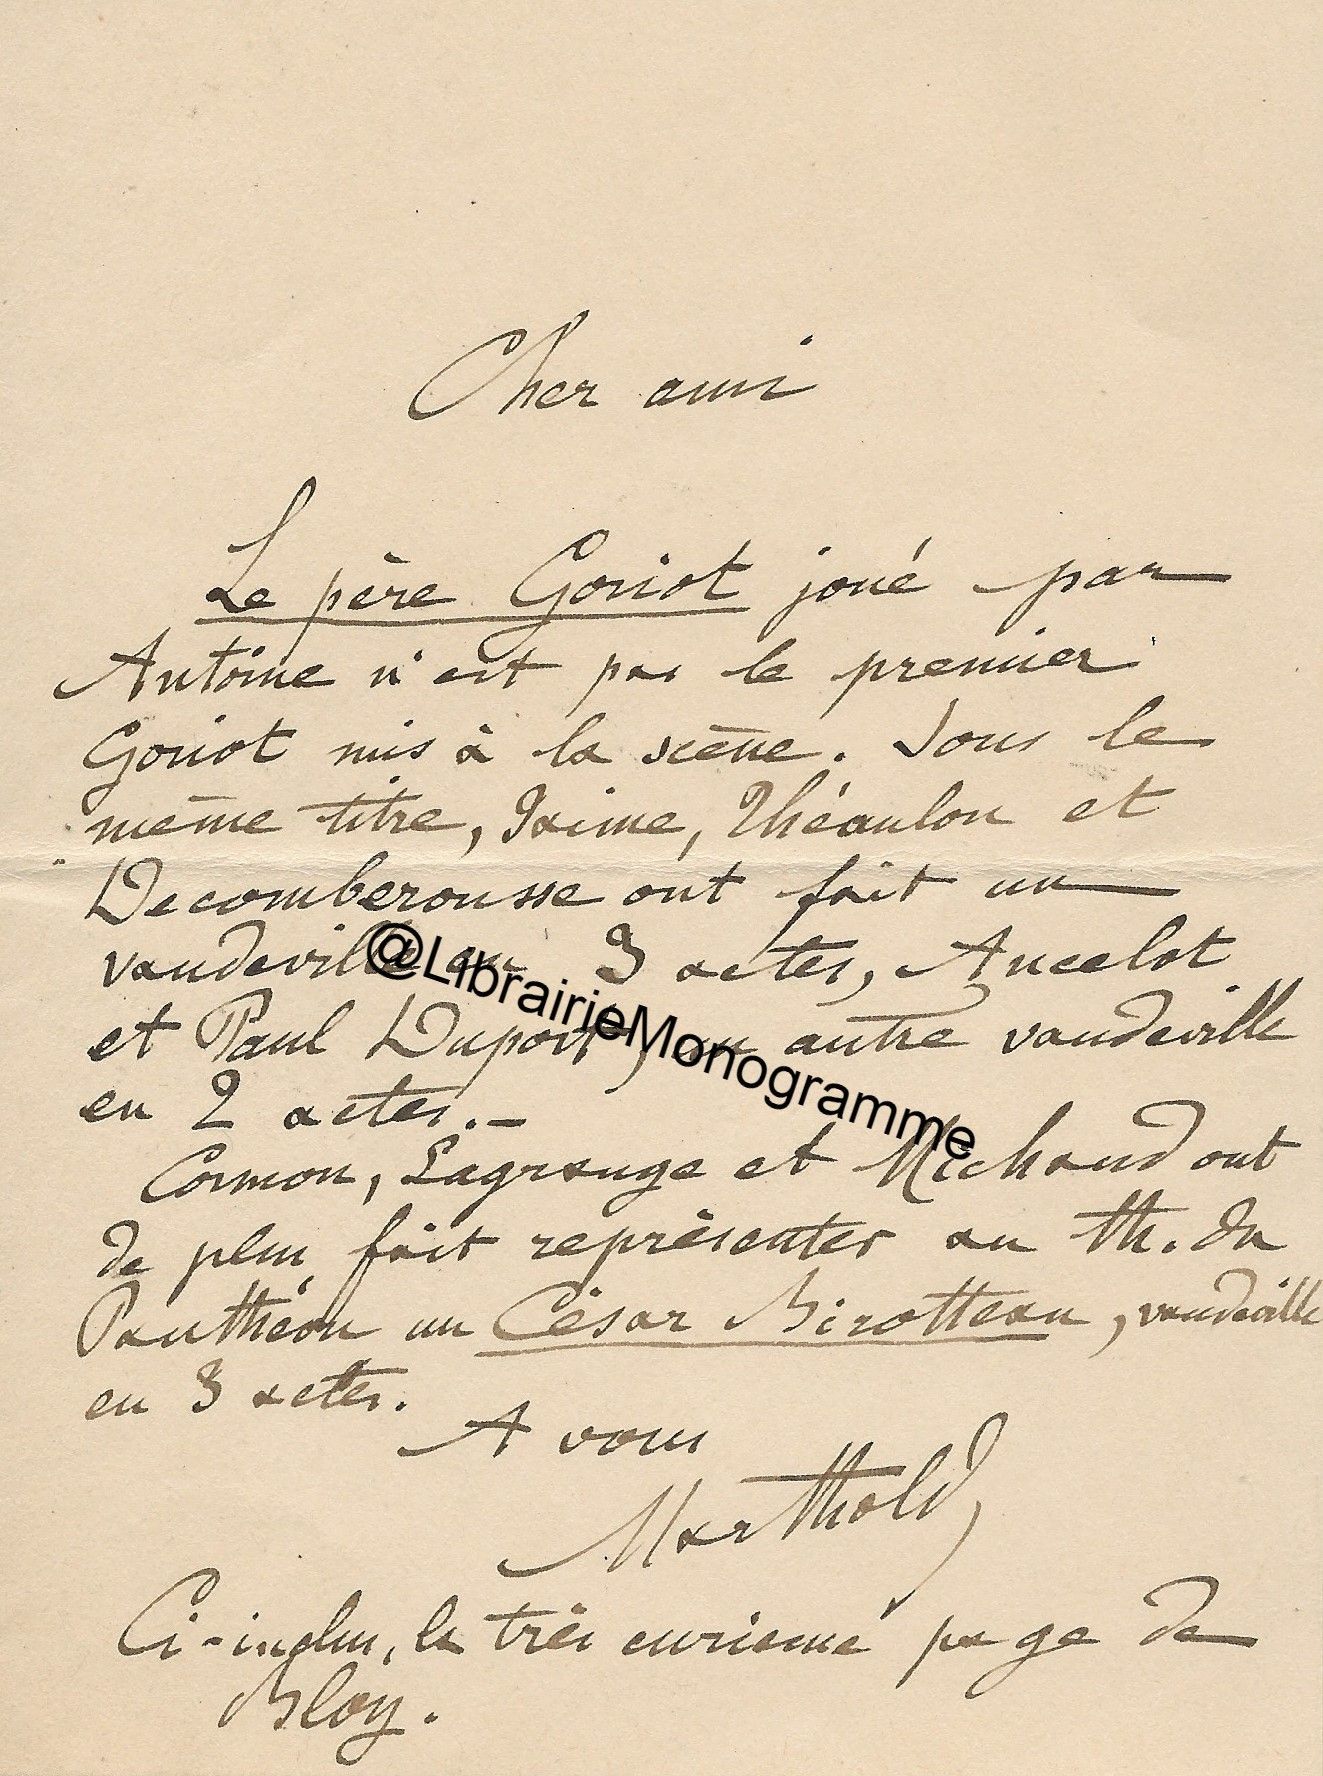 Cher ami
Le père Goriot joué par
Antoine n'est pas le premier
Goriot mis à la scène. Sous le
même titre, Jaime, Théaulon et
Decomberousse ont fait un
vaudeville en 3 actes, Ancelot
et Paul Duport, un autre vaudeville
en 2 actes. –
Cormon, Lagrange et Michaud ont
de plus fait représenter au th. du
Panthéon un César Birotteau, vaudeville
en 3 actes.
A vous
Marthold
Ci-inclus, la très curieuse page de
Bloy.
@LibrairieMonogramme